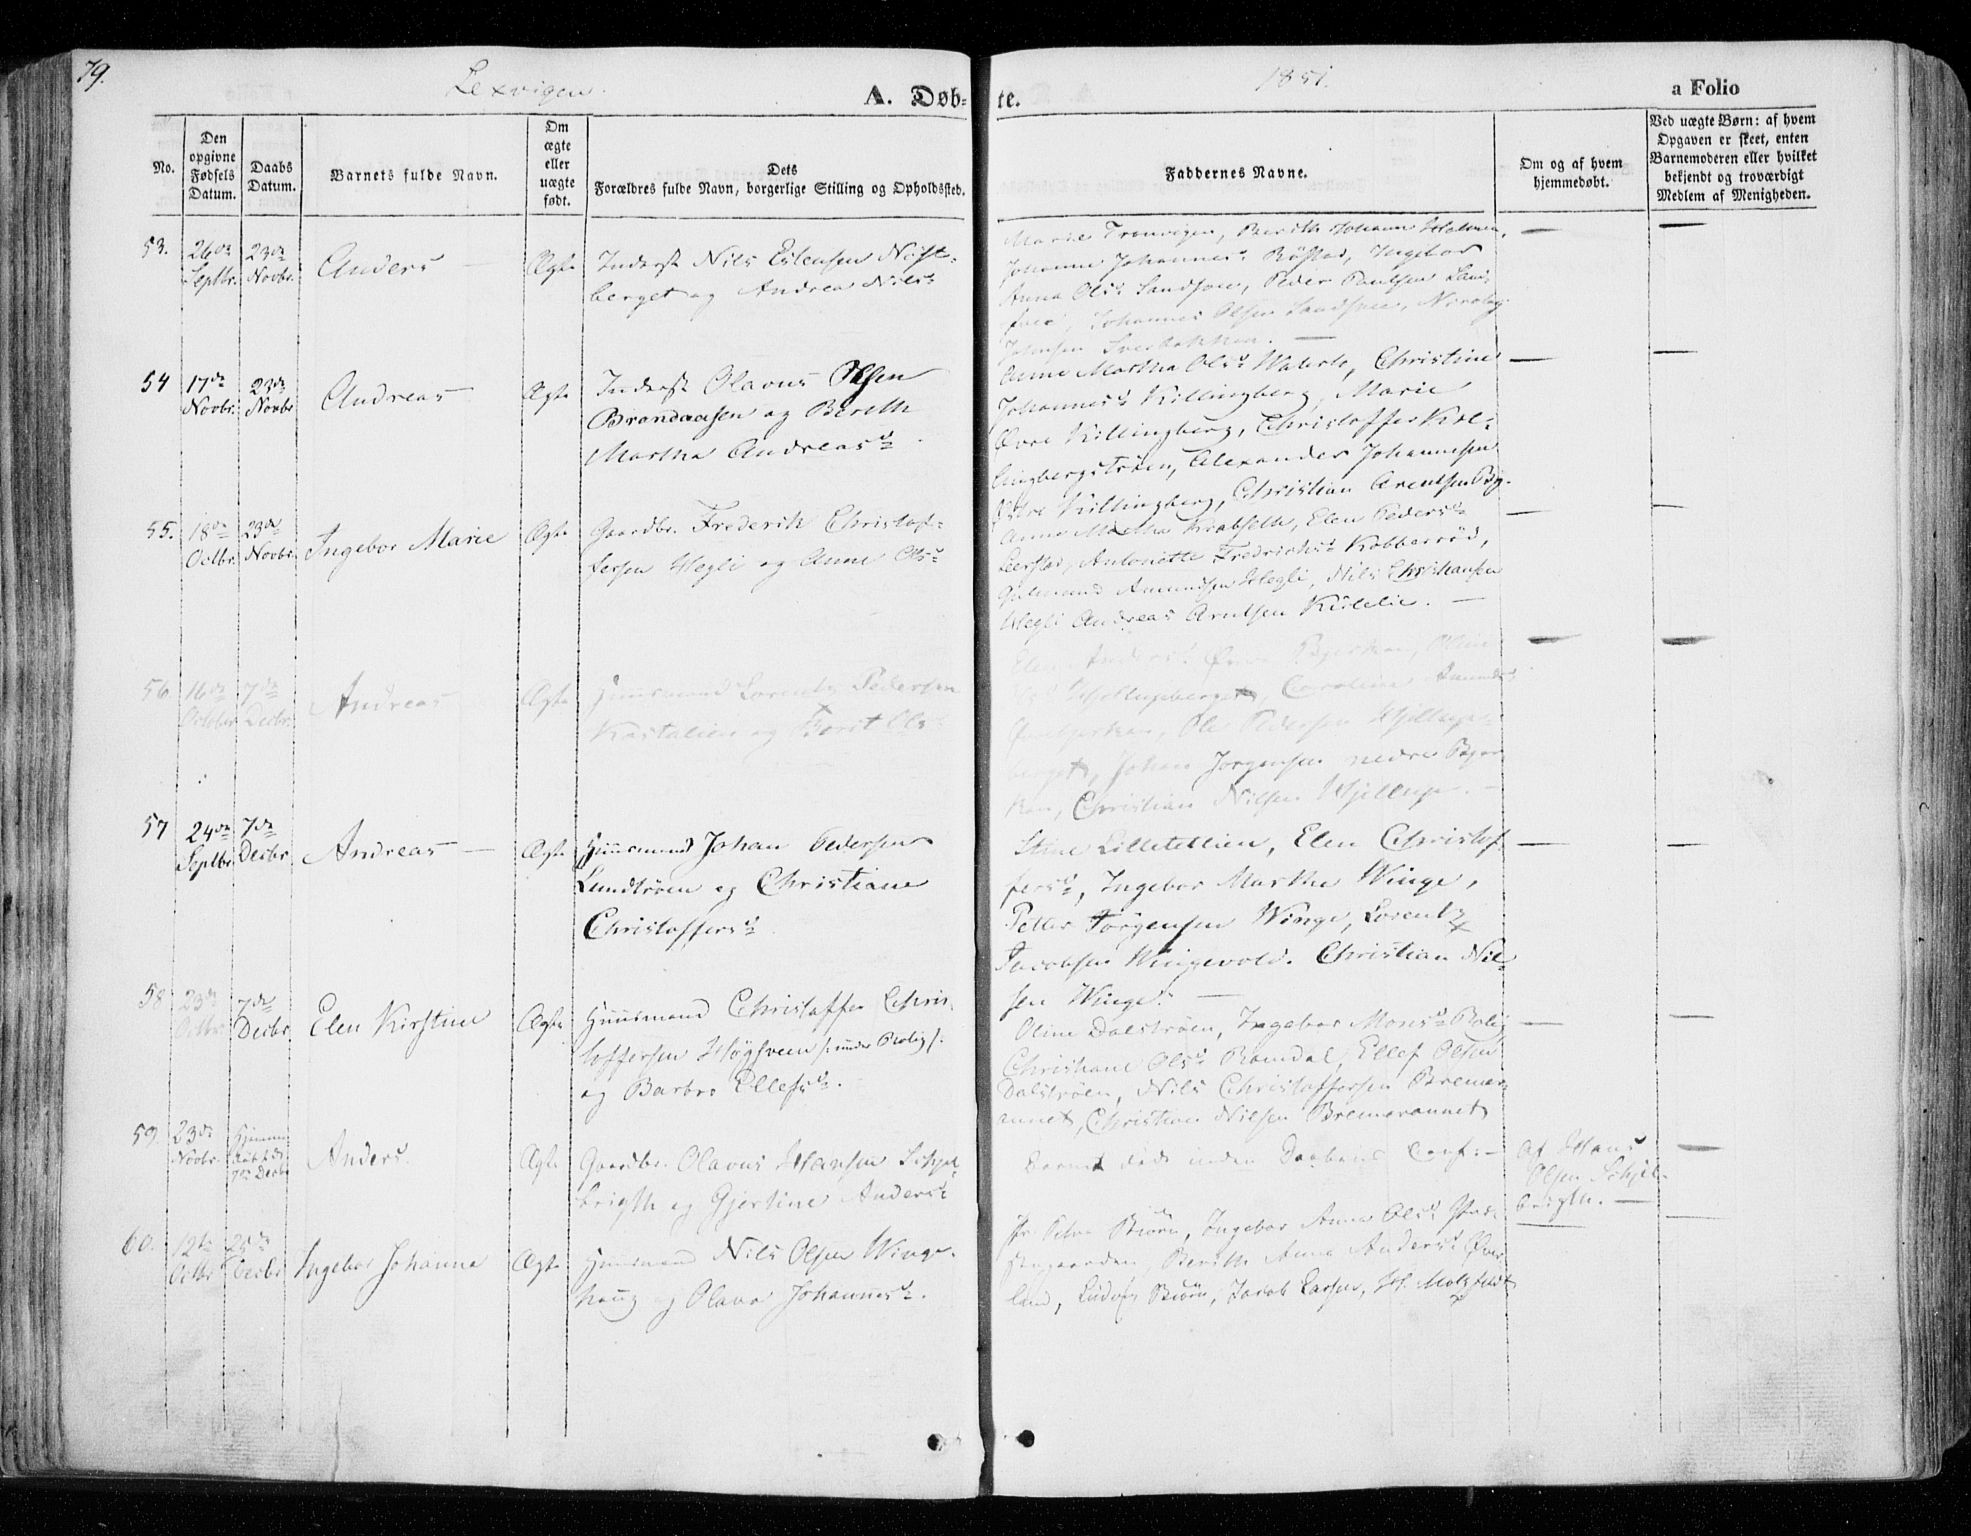 79.
Lexvigen.
1851.
A. Døb-
te.
a Folio
No.
Den
opgivne
Fødsels
Datum.
Daabs
Datum.
Barnets fulde Navn.
Om
ægte
eller
uægte
født.
Dets
Forældres fulde Navn, borgerlige Stilling og Opholdssted.
Faddernes Navne.
Om og af hvem
hjemmedøbt.
Ved uægte Børn: af hvem
Opgaven er skeet, enten
Barnemoderen eller hvilket
bekjendt og troværdigt
Medlem af Menigheden.
53.
26de
Septbr.
23de
Novbr.
Anders —
Ægte
Inderst Nils Estensen
berget og Andrea Nilsd
Marie Tronvigen, Berith Johanne
Johanne Johannesd Røstad, Ingebor
Anna Olsd Sandsven, Peder Paulsen
Johannes Olsen
Johnsen
54
17de
Novbr.
23de
Novbr
Andreas —
Ægte
Inderst Olavus Olsen
Brandaasen og Berith
Martha Andreasd
Anne Martha Olsd Christine
Johannesd Killingberg, Marie
Øvre Killingberg, Christoffer Kil-
lingbergstrøen, Alexander Johannesen
Killingberg, Christian Arentsen
55.
18de
Octbr.
23de
Novbr.
Ingebor Marie
Ægte
Gaardbr. Frederik Christof-
fersen Hegli og Anne Olsd
Anne Elen Pedersd
Leerstad, Antonette Fredriksd Kobberrød,
Amundsen Hegli, Nils Christiansen
Hegli Andreas Arntsen
56.
16de
October
7de
Decbr.
Andreas
Ægte
Huusmand Lorentz Pedersen
Kastalien og Berit Olsd
Elen Andersd Øvre Oline
Carolina
Ole Pedersen Hjellup-
berget, Johan Jørgensen nedre
Christian Nilsen Hjellup. —
57
24de
Septbr
7de
Decbr
Andreas —
Ægte
Huusmand Johan Pedersen
Lundtrøen og Christiane
Christoffersd
Stine Lilletellien, Elen Christof-
fersd, Ingebor Martha Winge,
Petter Jørgensen Winge, Lorentz
Jacobsen Wingevold. Christian Nil-
sen Winge. —
58
23de
Octbr
7de
Decbr.
Elen Kirstine
Ægte
Huusmand Christoffer Chris-
toffersen Høgsveen /: under Bolig :/
og Barbro Ellefsd.
Oline Dalstrøen, Ingebor Monsd Bolig
Christiane Olsd Ramdal, Ellef Olsen
Dalstrøen, Nils Christoffersen Bremer-
annet, Christian Nilsen Bremerannet
59.
23de
Novbr.
Hjemme
døbt d.
7de Decbr
Anders.
Ægte
Gaardbr. Olavus Hansen Schjel-
brigth og Gjertine Andersd
Barnet døde inden Daabens Conf: —
af Hans
Olsen Schjel-
brigth. —
60.
12te
Octbr
25de
Decbr
Ingebor Johanna
Ægte
Huusmand Nils Olsen Winge-
haug og Olava Johannesd.
Fr. Petra Biörn, Ingebor Anna Olsd
Berith Anna Andersd Øver-
land, Ludvig Biörn, Jacob Larsen, Joh. Motzfeldt